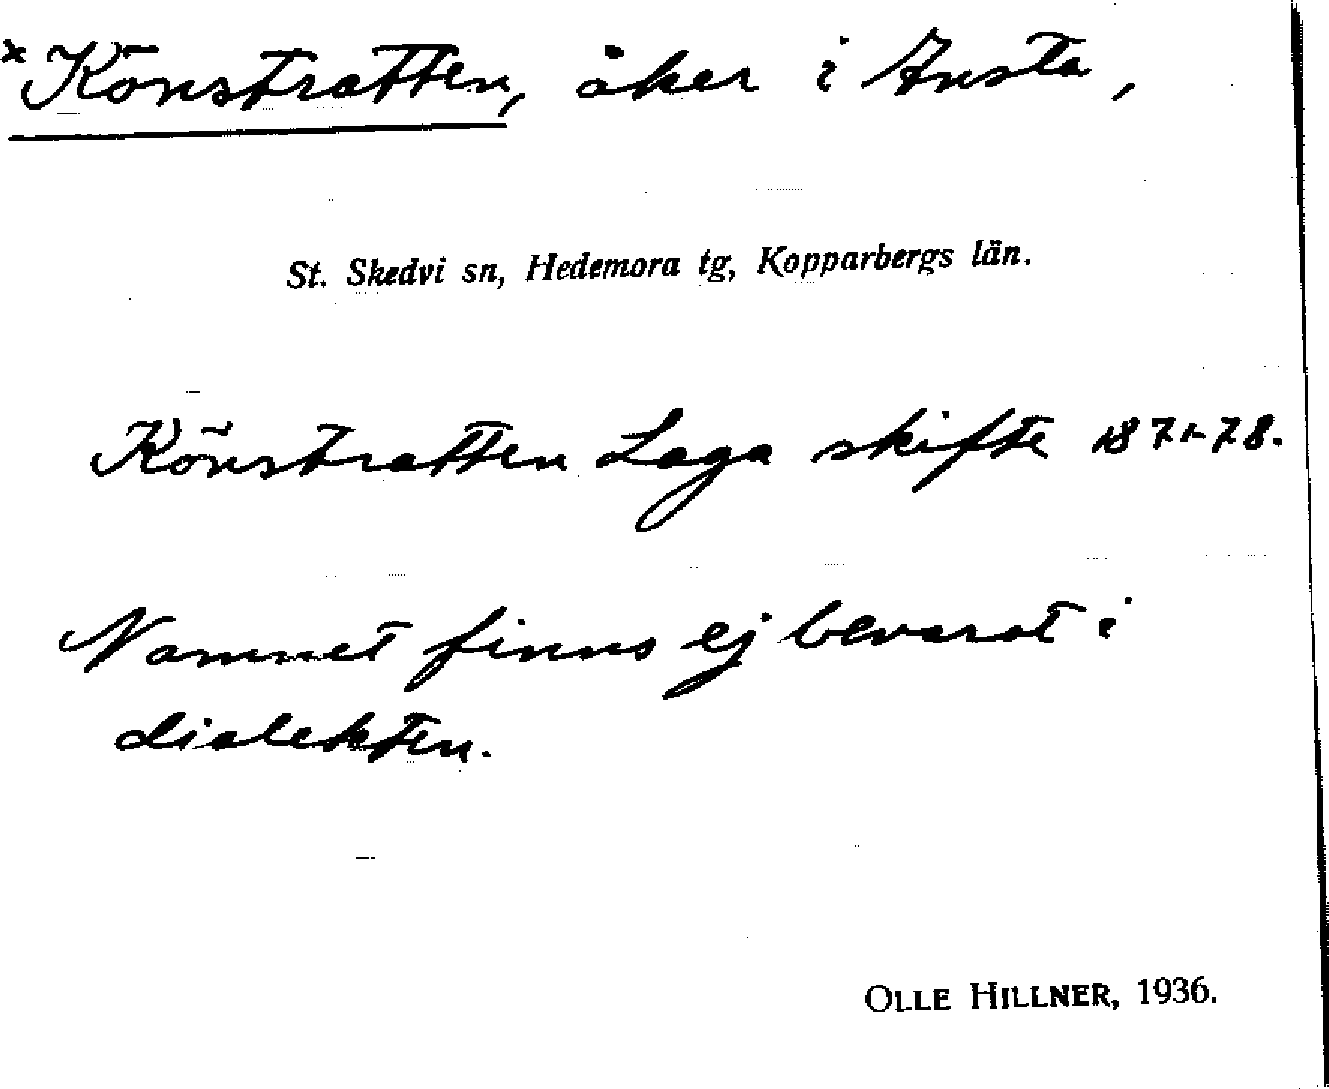 *Könstratten, åker i Ansta,
St. Skedvi sn, Hedemora tg, Kopparbergs län.
Könstratten Laga skifte 1871-78.
Namnet finns ej bevarat i
dialekten.
OLLE HILLNER, 1936.